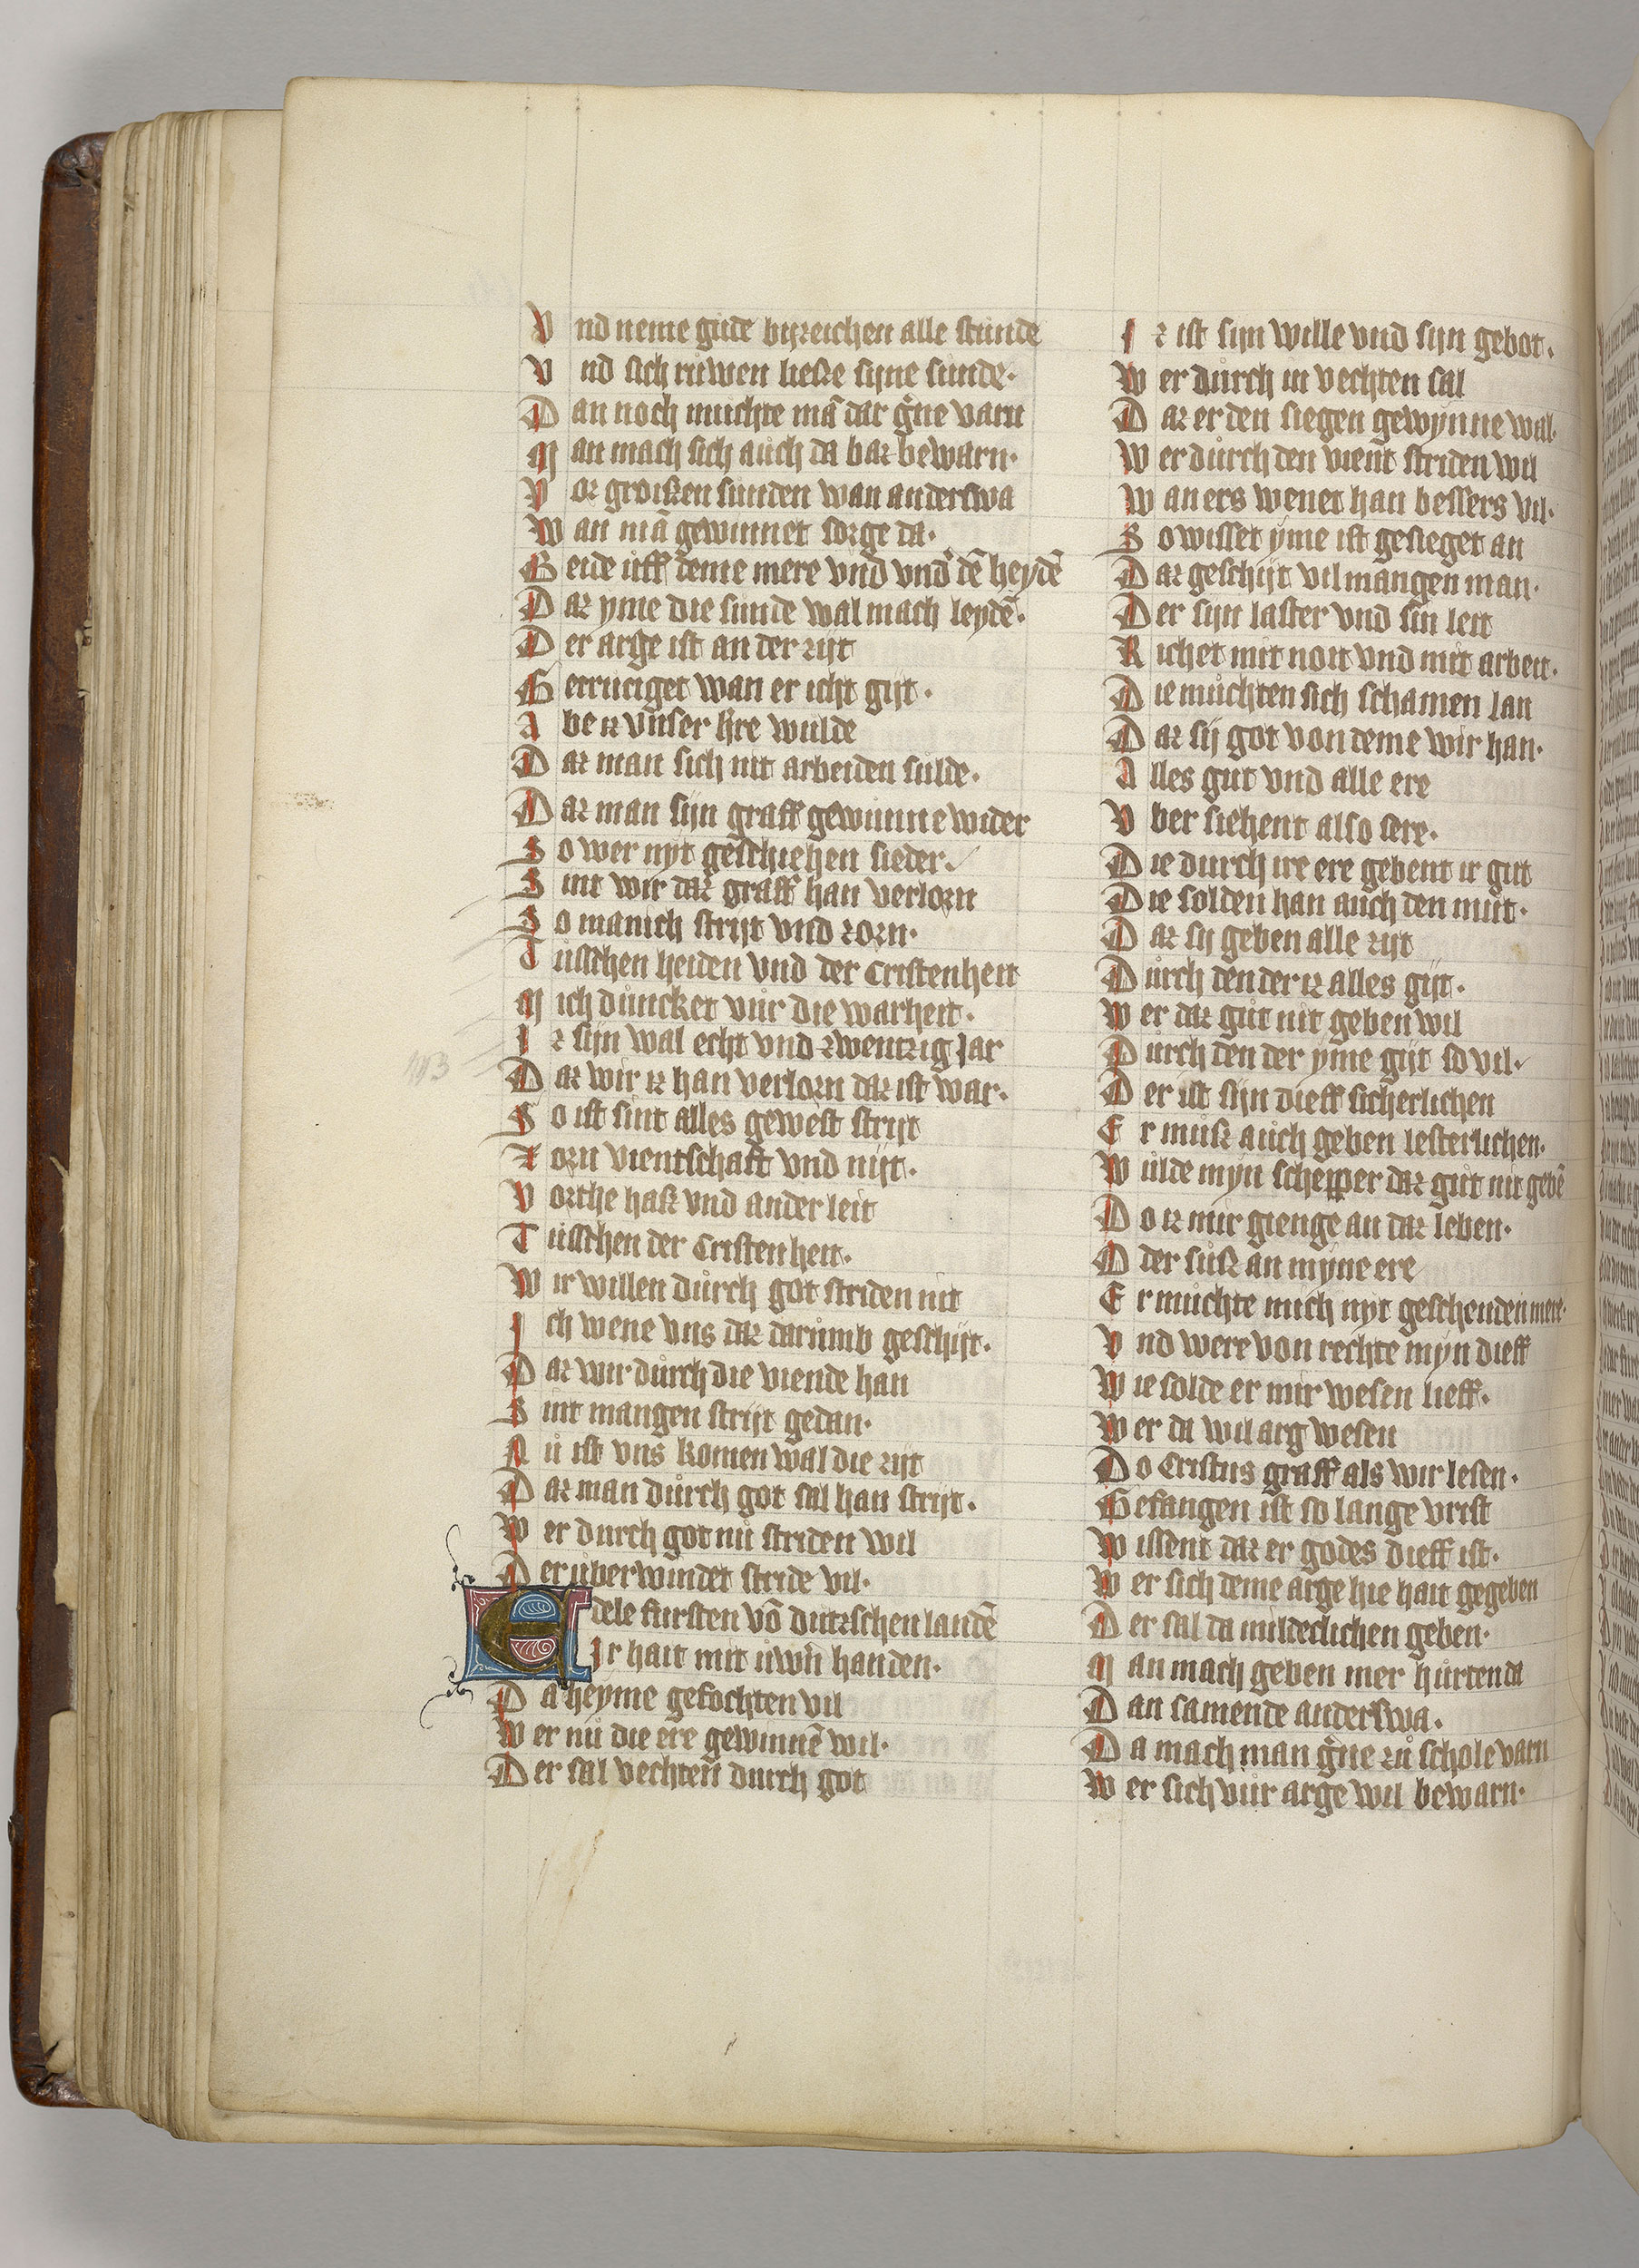 Vnd neme gude byzeichen alle stunde
Vnd sich ruwen liesze sijne sunde·
Dan noch muchte mā dar g̃ne varn
Man mach sich auch da baz bewarn·
Vor groiszen sunden wan anderswa
Wan mā gewinnet sorge da·
Beide uff deme mere vnd vnd̾ dē heydē
Daz yme die sunde wal mach leydē·
Der arge ist an der zijt
Gerruwiget wan er icht gijt·
Aber vnser h̾re wulde
Daz man sich nit arbeiden sulde·
Daz man sijn graff gewunne wider
So wer nyt geschiehen sieder·
Sint wir daz graff han verlorn
So manich strijt vnd zorn·
Tusschen heiden vnd der Cristenheit
Mich duncket vur die warheit·
Iz sijn wal echt vnd zwentzig Jar
Daz wir iz han verlorn daz ist war·
So ist sint alles gewest strijt
Zorn vientschafft vnd nijt·
Vorthe hasz vnd ander leit
Tusschen der Cristenheit·
Wir willen durch got striden nit
Ich wene vns daz darumb geschijt·
Daz wir durch die viende han
Sint mangen strijt gedan·
Nu ist vns komen wal die zijt
Daz man durch got sal han strijt·
Wer durch got nu striden wil
Der uberwindet stride vil·
Edele fursten vō dutzschen landē
Ir hait mit uwn̄ handen·
Da heyme gefochten vil
Wer nu die ere gewinnē wil·
Der sal vechten durch got
Iz ist sijn wille vnd sijn gebot·
Wer durch in vechten sal
Daz er den siegen gewynne wal·
Wer durch den vient striden wil
Wan ers wenet han bessers vil·
So wisset yme ist gesieget an
Daz geschijt vil mangen man·
Der sijn laster vnd sin leit
Richet mit noit vnd mit arbeit·
Die muchten sich schamen lan
Daz sij got von deme wir han·
Alles gut vnd alle ere
Vber siehent also sere·
Die durch ire ere gebent ir gut
Die solden han auch den mut·
Daz sij geben alle zijt
Durch den der iz alles gijt·
Wer daz gut nit geben wil
Durch den der yme gijt so vil·
Der ist sijn dieff sicherlichen
Er musz auch geben lesterlichen·
Wulde myn schepper daz gut nit gebē
Do iz mir gienge an daz leben·
Oder susz an myne ere
Er muchte mich nyt geschenden mere·
Vnd were von rechte myn dieff
Wie solde er mir wesen lieff·
Wer da wil arg wesen
Do Cristus graff als wir lesen·
Gefangen ist so lange vrist
Wissent daz er godes dieff ist·
Wer sich deme arge hie hait gegeben
Der sal da mildeclichen geben·
Man mach geben mer hurten da
Dan samende anderswa·
Da mach man g̃ne zu schole varn
Wer sich vur arge wil bewarn·